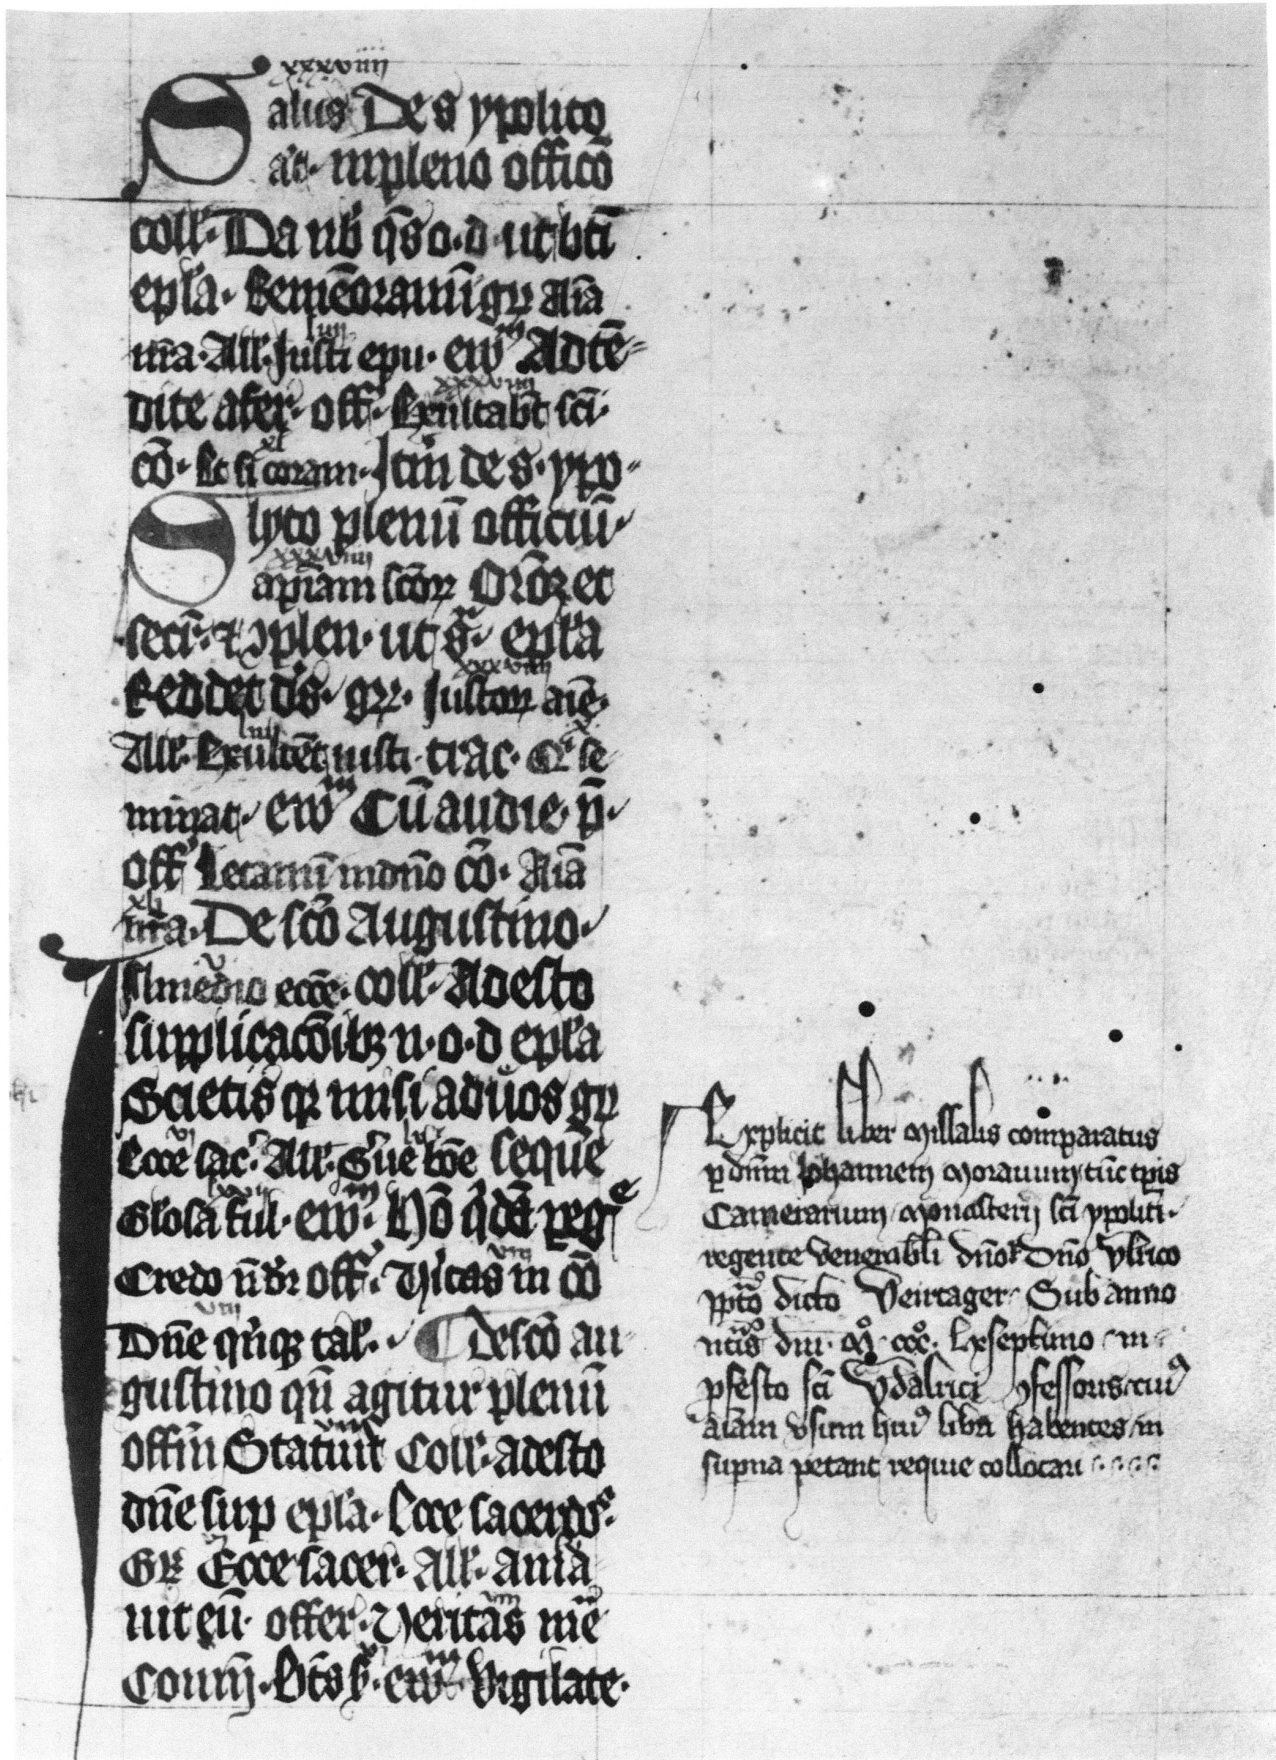 xxxviiii
Salus De s ypolito
ac. in pleno officō
coll. Da nb̄ q̄s o. d. ut bti
epl̄a. Rememoramī gr̄ Aīa
nr̄a. All. Justi epu. ew̄ Adtē
dite a fer. off. Exultabt̄ sci.
cō. Et si coram. Itm̄ de s. ypo
lyto plenū officiū.
xxxviiii
Sapīam sctōr Orōꝫ et
secr̄. ꝛ ꝯplen. ut s̄. epl̄a
Reddet ds̄. gr̄. Justor aīe.
All. Exultēt iusti. trac. Qi se
minat. ew̄ Cū audie. p̄.
off Letamī in dn̄o cō. Aīa
nr̄a. De scō Augustino.
In medio ecce. coll. Adesto
supplicacōibꝫ n. o. d epl̄a
Scietis qr misi ad vos gr̄
Ecce sac. All. seque
ew̄. Hō q̄dā pegͤ
Credo n̄ dr̄ off. Vitas in cō
Dn̄e qnqꝫ tal. De scō au
gustino qn̄ agitur plenū
offm̄ Statuit Coll. adesto
dn̄e sup epl̄a. Ecce sacerdos.
Gr Ecce sacer. All. ama
uit eū. offer. Veritas mē
Comm̄. Bt̄s ẜ. ew̄ Vigilate.
Explicit liber Missalis comparatus
p dn̄m Iohannem Morauum tūc tp̄is
Camerarium Monasterij scī ypoliti.
regente venerabl̄i dn̄oꝛ Dn̄o Vlrico
pp̄to dicto Veirtager Sub anno
nt̄is dnī. Mͦ. cccͦ. lxseptimo in
pfesto scī Vdalrici ꝯfessoris cuiꝰ
aīam vsum huiꝰ libri habentes in
supna petant requie collocari